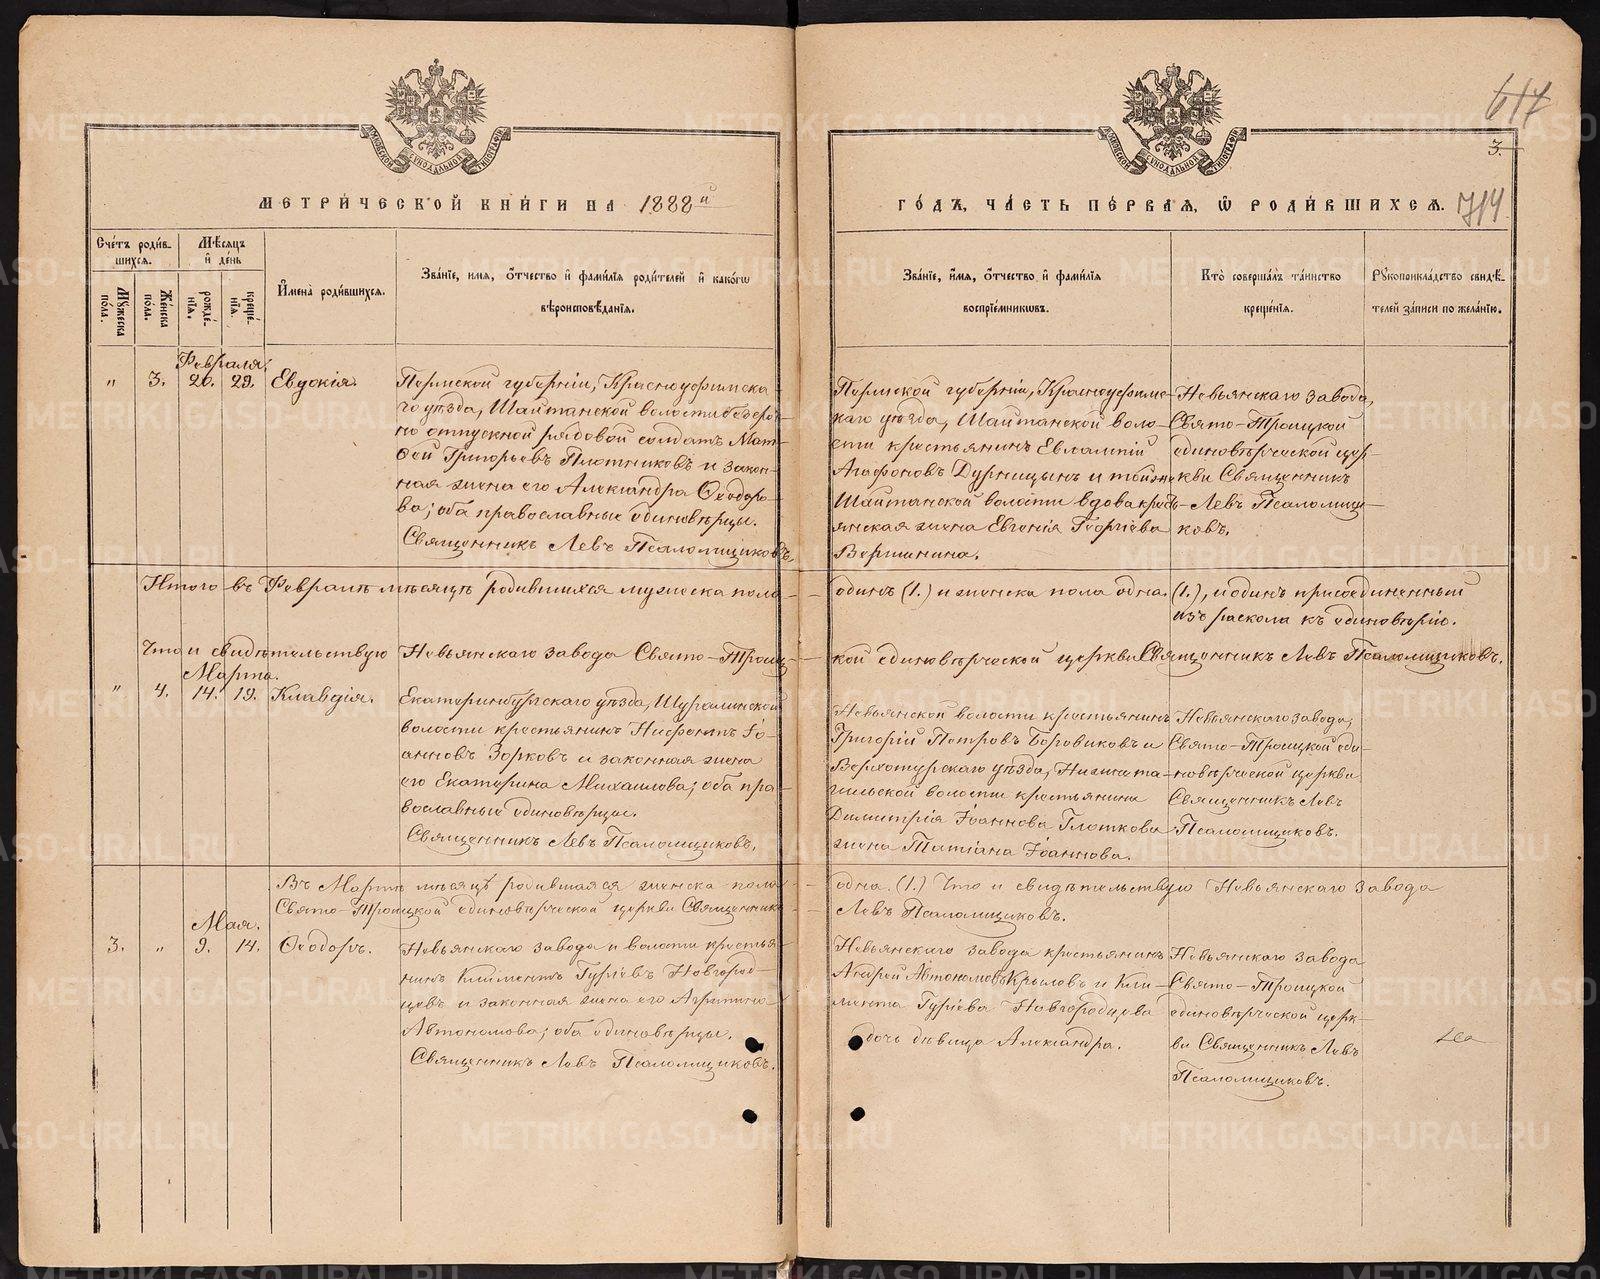 617
3.
МЕТРИ́ЧЕСКОЙ КНИ́ГИ НА 1888й
ГО́ДЪ, ЧА́СТЬ ПЕ́РВАѦ, Ѡ РОДИ́ВШИХСѦ. 714
Сче́тъ роди́в-
шихсѧ.
Мѣ́сѧцъ
и҆ де́нь
Мꙋ́жеска
по́ла.
Же́нска
по́ла.
рожде́-
нїѧ.
креще́-
нїѧ.
И҆мена̀ роди́вшихсѧ.
Зва́нїе, имѧ, ѻ҆́тчество и҆ фами́лїѧ роди́телей и҆ како́гѡ
вѣроисповѣ́данїѧ.
Зва́нїе, и҆́мѧ, ѻ҆́тчество и҆ фами́лїѧ
воспрїе́мникѡвъ.
Кто̀ соверша́лъ та́инство
креще́нїѧ.
Рꙋкоприкла́дство свидѣ́-
телей за́писи по жела́нїю.
Февраля.
" 3. 26. 29. Евдокія.
Пермской губерніи, Красноуфимска-
го уѣзда, Шайтанской волости безсроч-
но отпускной рядовой солдатъ Мат-
ѳей Григорьевъ Плотниковъ и закон-
ная жена его Александра Ѳеодоро-
ва; оба православные единовѣрцы.
Священникъ Левъ Псаломщиковъ.
Пермской губерніи, Красноуфимс-
каго уѣзда, Шайтанской воло-
сти крестьянинъ Евлампій
Агафоновъ Дурницынъ и тойже
Шайтанской волости вдова кресть-
янская жена Евгенія Георгіева
Вершинина.
Невьянскаго завода,
Свято-Троицкой
единовѣрческой цер-
кви Священникъ
Левъ Псаломщи-
ковъ.
Итого въ Февралѣ мѣсяцѣ родившихся мужеска пола - - одинъ (1.) и женска пола одна. (1.), и одинъ присоединенный
изъ раскола къ единовѣрію.
Что и свидѣтельствую Невьянскаго завода Свято-Троиц- кой единовѣрческой церкви Священникъ Левъ Псаломщиковъ.
Марта.
" 4. 14. 19. Клавдія.
Екатеринбургскаго уѣзда, Шуралинской
волости крестьянинъ Нифонтъ Іо-
анновъ Зорковъ и законная жена
его Екатерина Михаилова; оба пра-
вославные единовѣрцы.
Священникъ Левъ Псаломщиковъ.
Невьянской волости крестьянинъ
Григорій Петровъ Боровиковъ и
Верхотурскаго уѣзда, Нижнета-
гильской волости крестьянина
Димитрія Іоаннова Глоткова
жена Татіана Іоаннова.
Невьянскаго завода,
Свято-Троицкой еди-
новѣрческой церкви
Священникъ Левъ
Псаломщиковъ.
Въ Мартѣ мѣсяцѣ родившаяся женска пола - - одна. (1.) Что и свидѣтельствую Невьянскаго завода
Свято-Троицкой единовѣрческой церкви Священникъ - - Левъ Псаломщиковъ.
Мая.
3. " 9. 14. Ѳеодоръ.
Невьянскаго завода и волости крестья-
нинъ Климентъ Гуріевъ Новгород-
цевъ и законная жена его Агрипина
Автономова; оба единовѣрцы.
Священникъ Левъ Псаломщиковъ.
Невьянскаго завода крестьянинъ
Андрей Автономовъ Крыловъ и Кли-
мента Гуріева Новгородцева
дочь дѣвица Александра.
Невьянскаго завода
Свято-Троицкой
единовѣрческой церк-
ви Священникъ Левъ
Псаломщиковъ.
METRIKI.GASO-URAL.RU